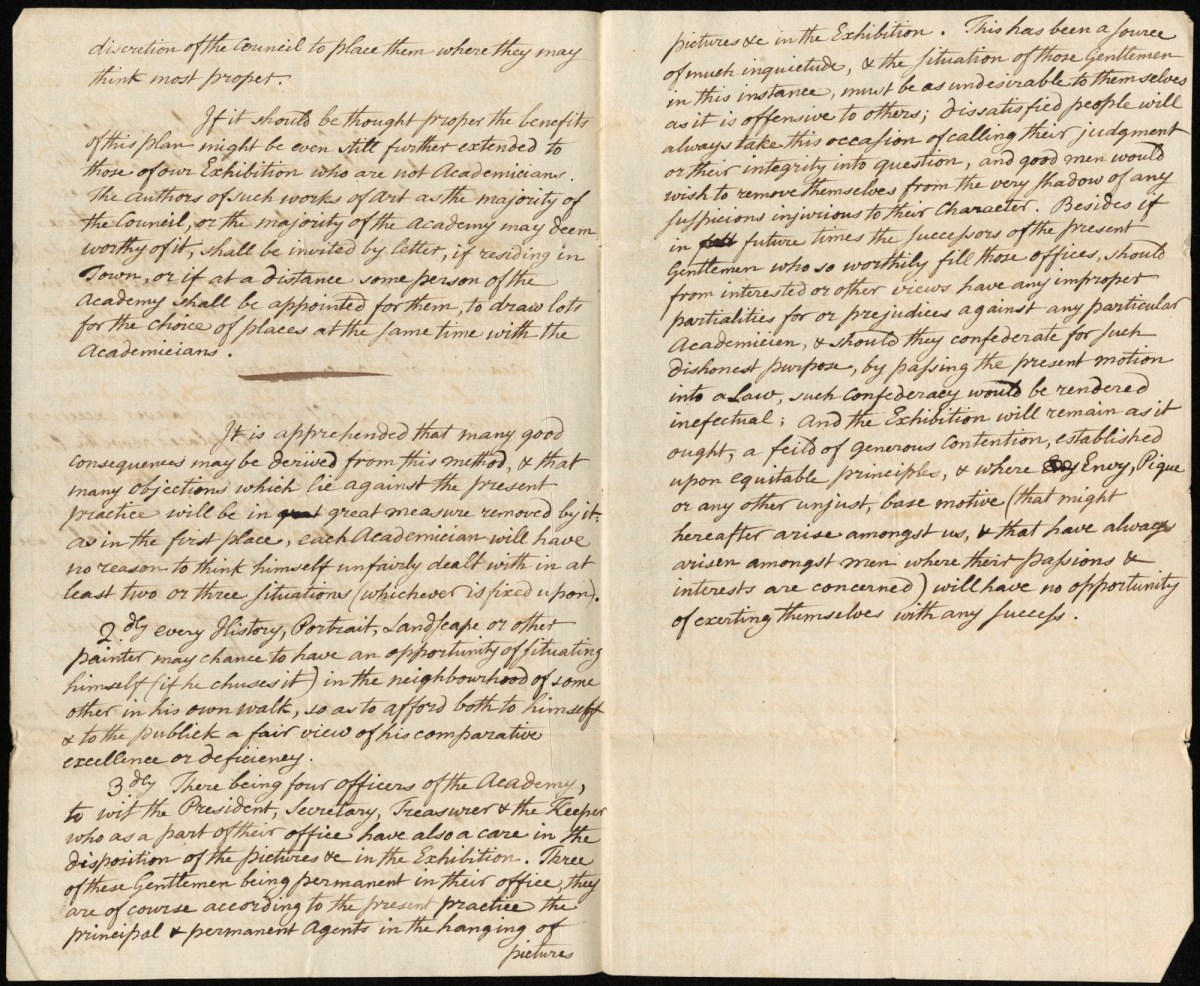 discretion of the Council to place them where they may
think most proper.
If it should be thought proper the benefits
of this plan might be even still further extended to
those of our Exhibition who are not Academicians.
The Authors of such works of Art as the majority of
the Council, or the majority of the Academy may deem
worthy of it, shall be invited by letter, if residing in
Town, or if at a distance some person of the
Academy shall be appointed for them, to draw lots
for the choice of places at the same time with the
Academicians.
It is apprehended that many good
consequences may be derived from this method, & that
many objections which lie against the present
practice will be in great measure removed by it.
as in the first place, each Academician will have
no reason to think himself unfairly dealt with in at
least two or three situations (whichever is fixed upon).
2dly every History, Portrait, Landscape or other
painter may chance to have an opportunity of situating
himself (if he chuses it) in the neighbourhood of some
other in his own walk, so as to afford both to himself
& to the publick a fair view of his comparative
excellence or deficiency.
3dly There being four officers of the Academy,
to wit the President, Secretary, Treasurer & the Keeper
who as a part of their office have also a care in the
disposition of the pictures &c in the Exhibition. Three
of these Gentlemen being permanent in their office, they
are of course according to the present practice the
principal & permanent Agents in the hanging of
pictures
pictures &c in the Exhibition. This has been a source
of much inquietude, & the situation of those Gentlemen
in this instance, must be as undesirable to themselves
as it is offensive to others; dissatisfied people will
always take this occasion of calling their judgment
or their integrity into question, and good men would
wish to remove themselves from the very shadow of any
suspicions injurious to their Character. Besides if
in future times the successors of the present
Gentlemen who so worthily fill those offices, should
from interested or other views have any improper
partialities for or prejudices against any particular
Academicien, & should they confederate for such
dishonest purpose, by passing the present motion
into a Law, such confederacy would be rendered
inefectual; And the Exhibition will remain as it
ought, a feild of generous contention, established
upon equitable principles, & where Envy, Pique
or any other unjust, base motive (that might
hereafter arise amongst us, & that have always
arisen amongst men where their passions &
interests are concerned) will have no opportunity
of exerting themselves with any success.